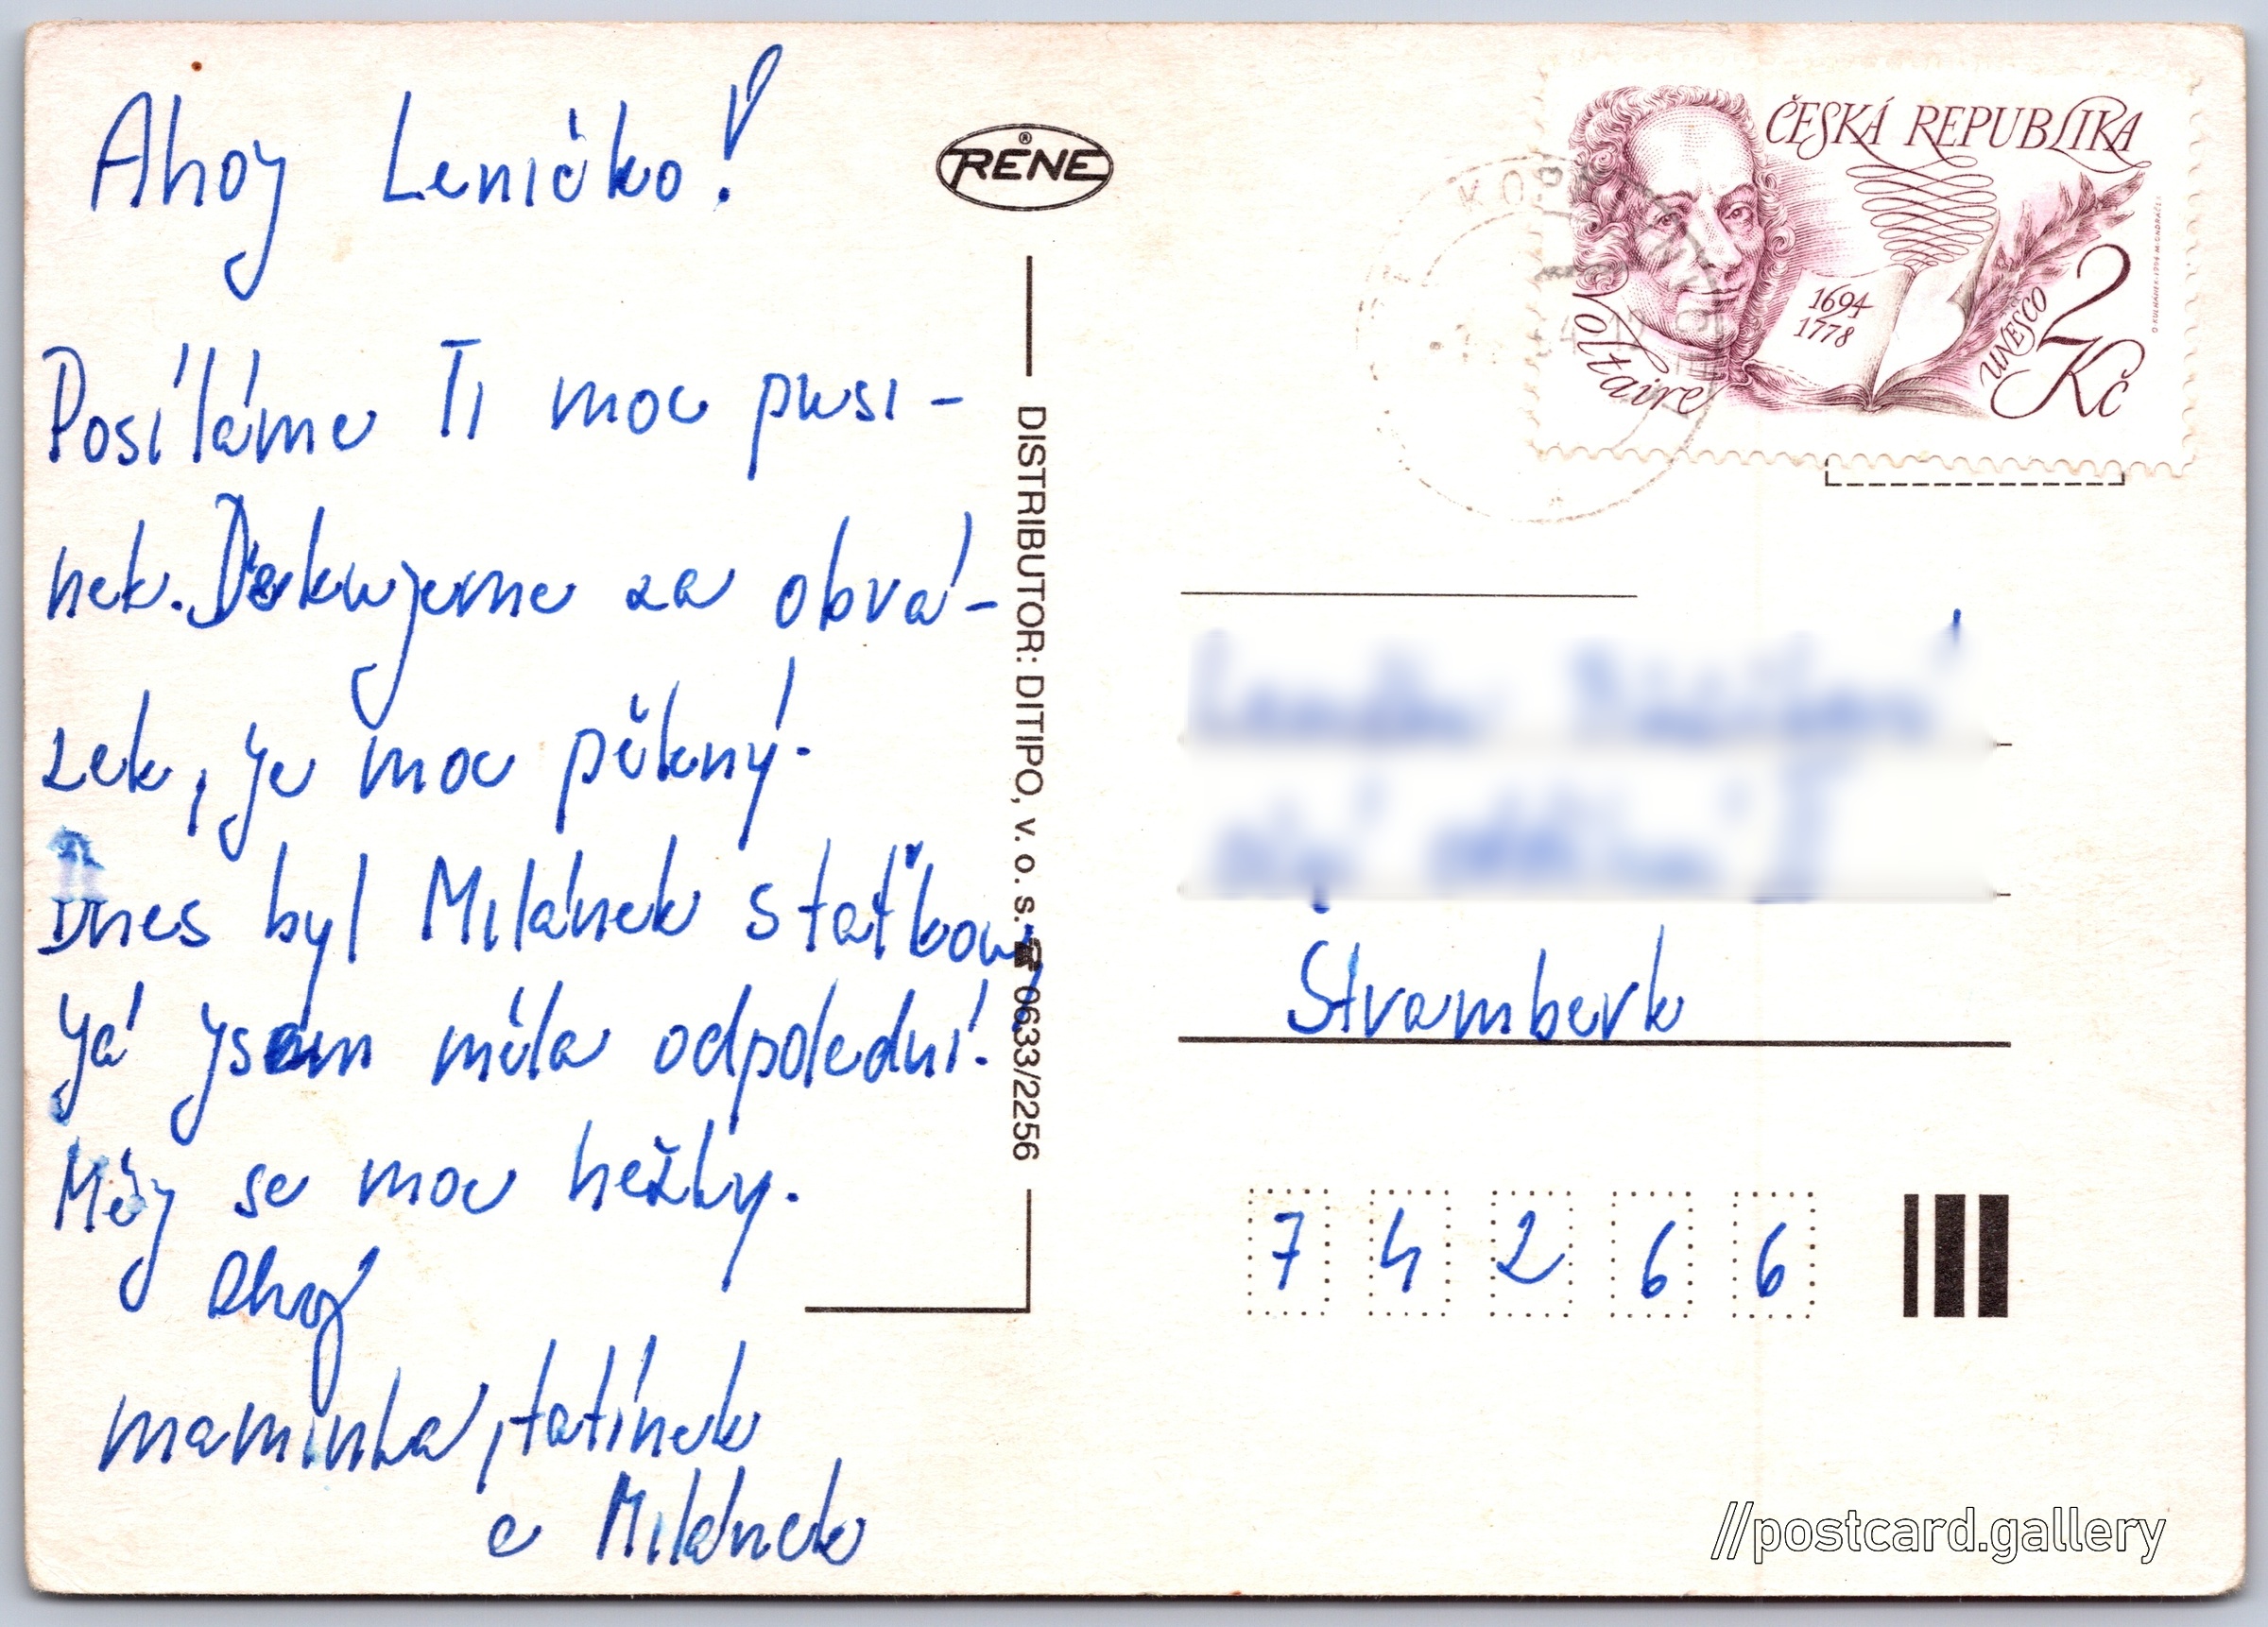 Ahoj Leničko!
Posíláme Ti moc pusi-
nek. Děkujeme za obrá-
zek, je moc pěkný.
Dnes byl Milánek s taťkou,
Já jsem měla odpolední.
Měj se moc hezky.
Ahoj
maminka, tatínek
a Milánek
RENE
®
DISTRIBUTOR: DITIPO, v. o. s. ☎ 0633/2256
ČESKÁ REPUBLIKA
1694
1778
Voltaire
UNESCO
2
Kč
Štramberk
7 4 2 6 6
//postcard.gallery